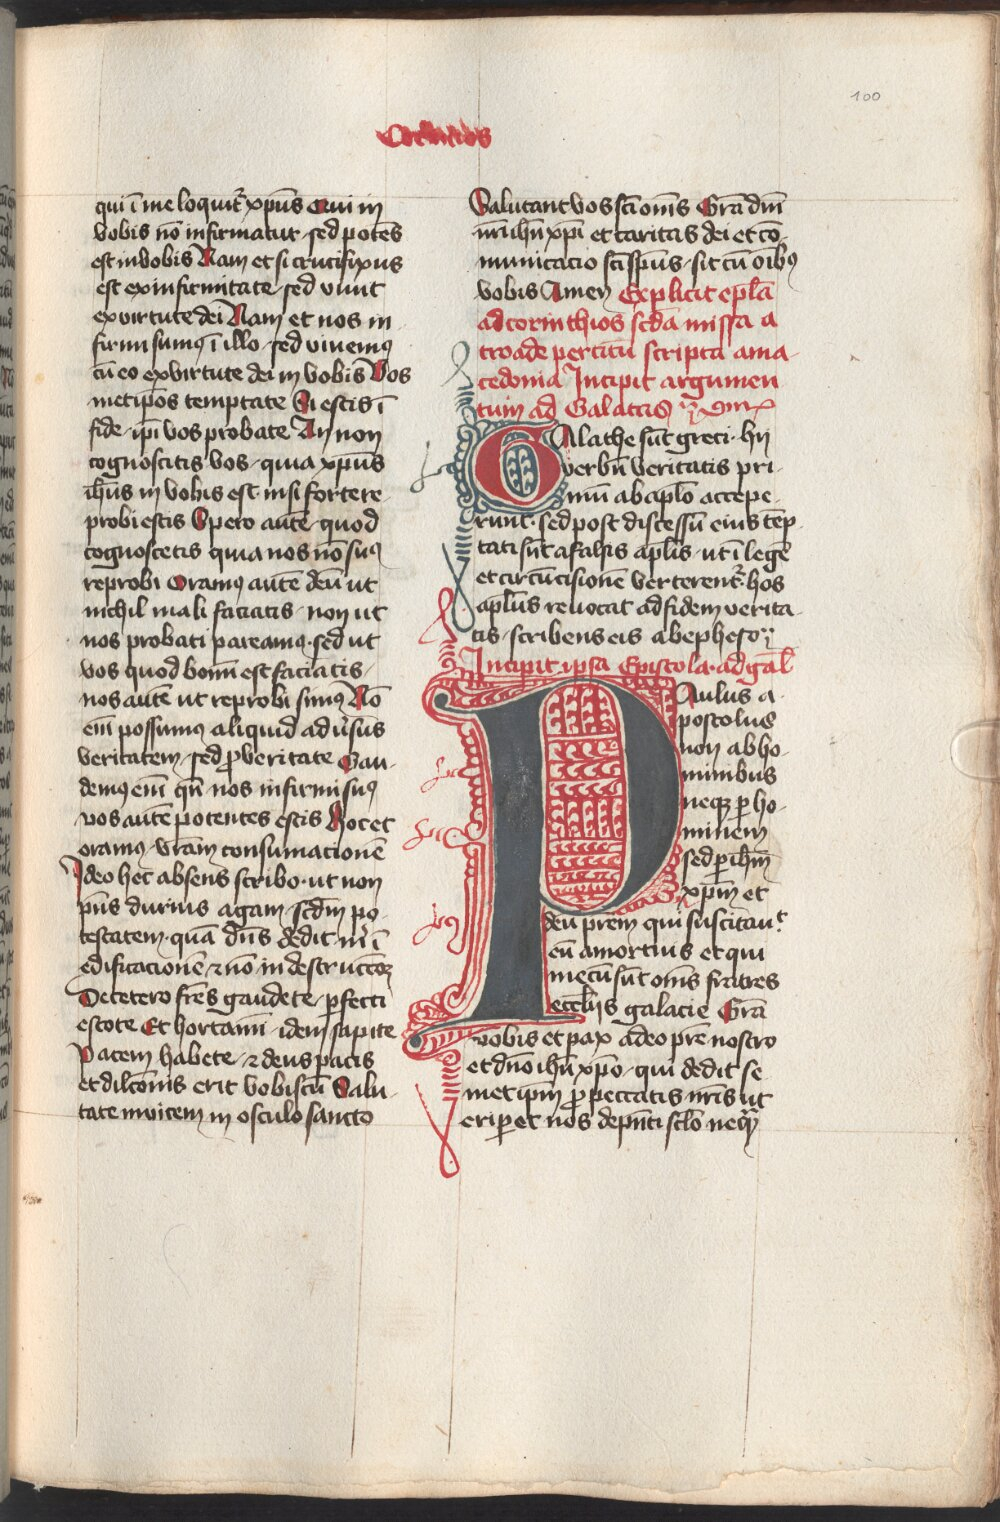 100
qui ī me loquit᷑ xp̄us Qui in
vobis nō infirmatur sed potēs
est in vobis Nam et si crucifixus
est ex infirmitate sed viuit
ex virtute dei Nam et nos in
firmi sumꝰ ī illo sed viuemꝰ
cū eo ex virtute dei in vobis Vos
met ip̄os temptate Si estis ī
fide ip̄i vos probate An non
cognoscitis vos quia xp̄us
ih̄us in vobis est nisi forte re
probi estis Spero autē quod
cognoscetis quia nos nō sūꝰ
reprobi Oramꝰ autē deū ut
nichil mali faciatis non ut
nos probati pareamꝰ sed ut
vos quod bonū est faciatis
nos autē ut reprobi simꝰ Nō
em̄ possumꝰ aliquid adu̓sus
veritatem sed ꝓ veritate Gau
demꝰ em̄ qn̄ nos infirmi sūꝰ
vos autē potentes estis Hoc et
oramꝰ vr̄am consumacionē
Ideo hec absens scribo ut non
pn̄s durius agam scdm̄ po
testatem quā dn̄s dedit m̓ ī
edificacionē ⁊ nō in destruccōꝫ
De cetero fr̄es gaudete ꝑfecti
estote Exhortamī idem sapite
Pacem habete ⁊ deus pacis
et dilcōnis erit vobiscū Salu
tate inuicem in osculo sancto
Salutant vos sc̄i om̄s Gr̄a dn̄i
nr̄i ih̄u xp̄i et caritas dei et cō
municacio sc̄i sp̄us sit cū oībꝰ
vobis Amen Explicit ep̄la
ad corinthios scd̄a missa a
troade per titū scripta a ma
cedonia Incipit argumen
tum ad Galatas
Galathe sūt greci hij
verbū veritatis pri
mū ab apl̄o accepe
runt sed post discessū eius tēp
tati sūt a falsis apl̄is ut ī legē
et circūcisionē verterent᷑ hos
apl̄us reuocat ad fidem verita
tis scribens eis ab epheso
Incipit ipsa Epistola ad gal̄
Paulus a
postolus
non ab ho
minibus
neqꝫ ꝑ ho
minem
sed ꝑ ih̄m
xp̄m et
deū pr̄em qui suscitauᷓt
eū a mortuis et qui
mecū sūt om̄s fratres
eccl̄ijs galacie Gr̄a
vobis et pax a deo pr̄e nostro
et dn̄o ih̄u xp̄o qui dedit se
met ip̄m ꝓ peccatis nr̄is ut
eriꝑet nos de pn̄ti scl̄o neqᷓ